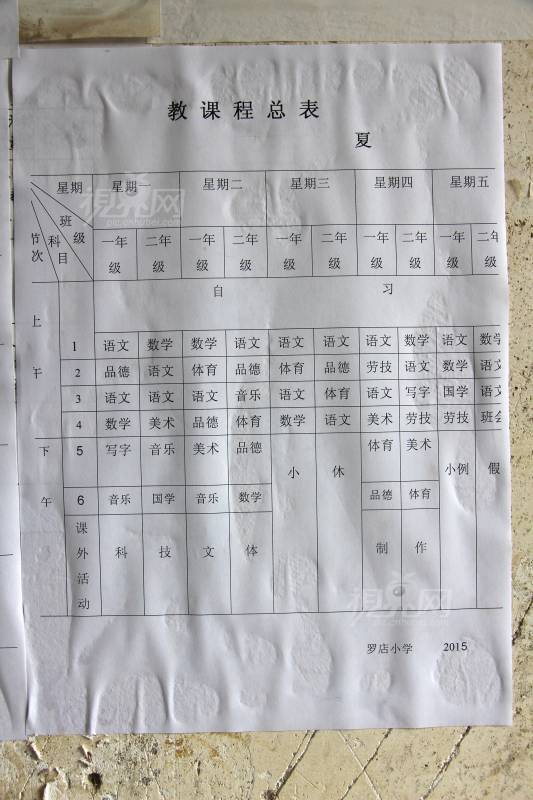 教课程总表
夏
星期 星期一 星期二 星期三 星期四 星期五
班级 科目 节次
一年级 二年级 一年级 二年级 一年级 二年级 一年级 二年级 一年级 二年级
自 习
上午
1 语文 数学 数学 语文 语文 语文 语文 数学 语文 数学
2 品德 语文 体育 品德 体育 品德 劳技 语文 数学 语文
3 语文 语文 语文 音乐 语文 体育 语文 写字 国学 语文
4 数学 美术 品德 体育 数学 语文 美术 劳技 劳技 班会
下午
5 写字 音乐 美术 品德 小 休 体育 美术 小例 假
6 音乐 国学 音乐 数学 品德 体育
课外活动 科 技 文 体 制 作
罗店小学 2015
視界网
視界网